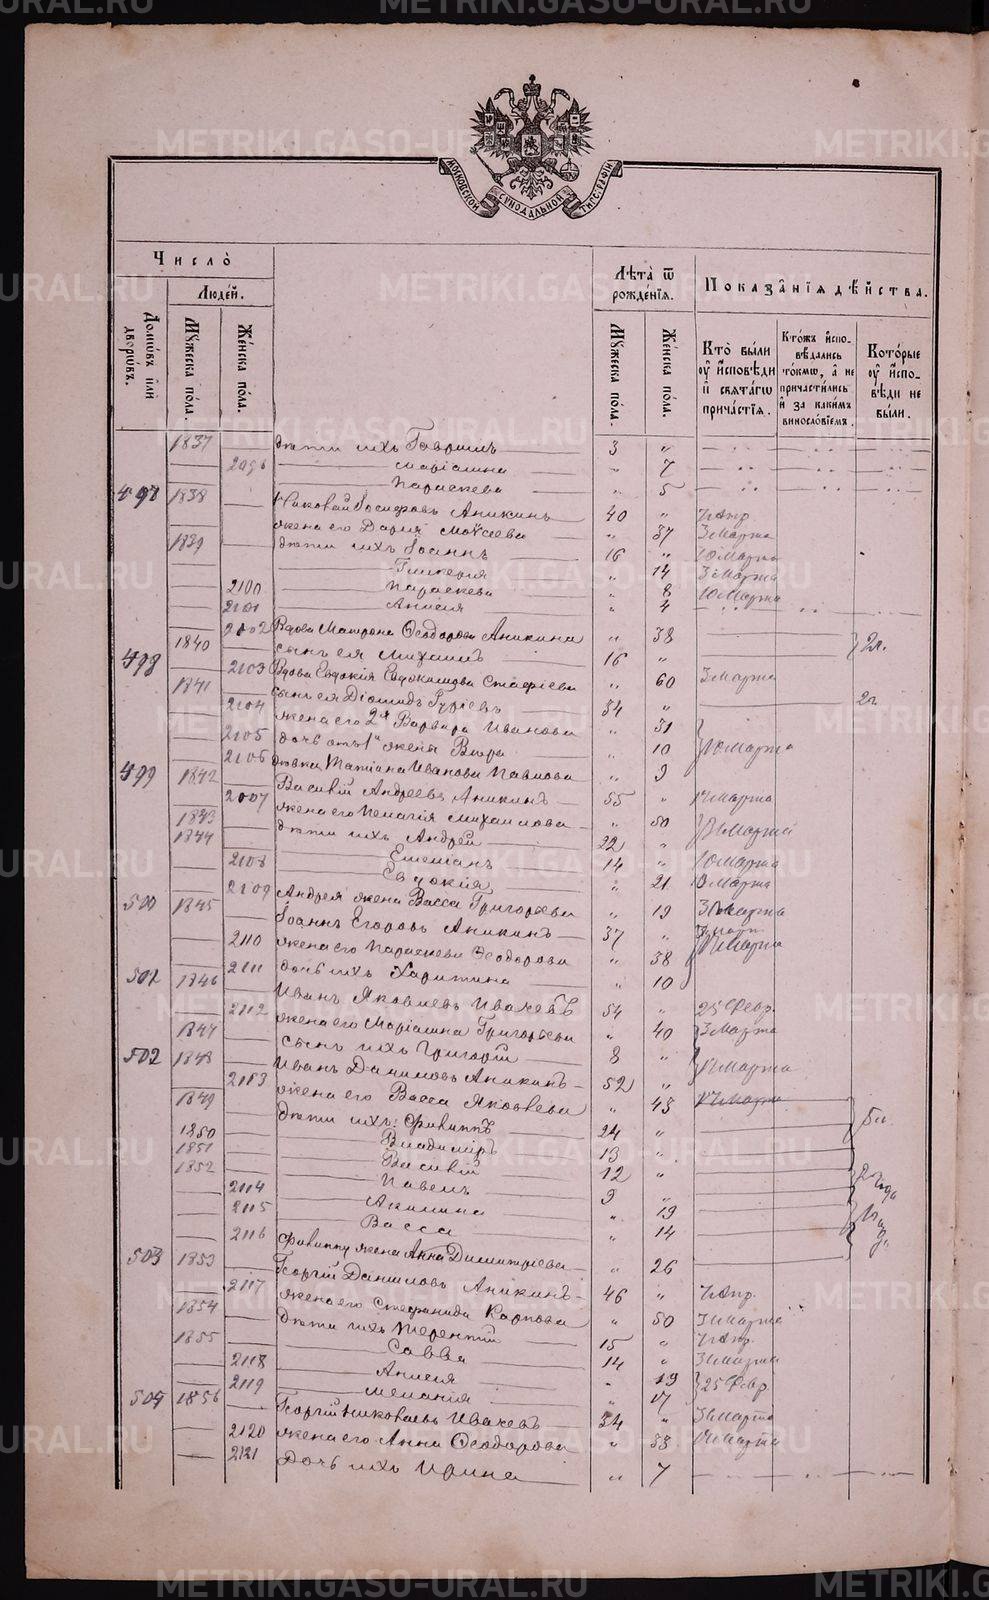 МОСКОВСКОЙ СУНОДАЛЬНОЙ ТИПОГРАФІИ
Число̀
Люде́й.
Домѡ́въ и҆лѝ дворѡ́въ.
Мꙋ́жеска по́ла.
Же́нска по́ла.
Лѣ́та ѿ рожде́нїѧ.
Мꙋ́жеска по́ла.
Же́нска по́ла.
Показа̂нїѧ дѣ́йства.
Кто̀ бы́ли оу҆ и҆́сповѣди и҆ свѧта́гѡ прича́стїѧ.
Кто́жъ и҆спо- вѣ́дались то́кмѡ, а҆ не причасти́лись и҆ за каки́мъ виносло́вїемъ.
Кото́рые оу҆ и҆́спо- вѣди не бы́ли.
1837 дѣти ихъ Гавріилъ 3 „
2096 Маріамна „ 7
Параскева „ 5
497 1838 Николай Іосифовъ Аникинъ 40 „ 7 Апр.
жена его Дарія Моѵсеева „ 37 3 Марта
1839 дѣти ихъ Іоаннъ 16 „ 10 Марта
Гликерія „ 14 3 Марта
2100 Параскева „ 8 10 Марта
2101 Анисія „ 4
2102 Вдова Матрона Ѳеодорова Аникина „ 38
1840 сынъ ея Михаилъ 16 „ 2 л.
498 2103 Вдова Евдокія Евдокимова Стафіева „ 60 3 Марта
1841 сынъ ея Діомидъ Гуріевъ 34 „ 2 г.
2104 жена его 2я Варвара Иванова „ 31
2105 дочь отъ 1й жены Вѣра „ 10 10 Марта
2106 дѣвка Татіана Иванова Павлова „ 9
499 1842 Василій Андреевъ Аникинъ 55 „ 17 Марта
2007 жена его Пелагія Михаилова „ 50
1843 дѣти ихъ Андрей 22 „
1844 Емеліанъ 14 „ 10 Марта
2108 Евдокія „ 21 10 Марта
2109 Андрея жена Васса Григорьева „ 19 31 Марта
500 1845 Іоаннъ Егоровъ Аникинъ 37 „
2110 жена его Параскева Ѳеодорова „ 38 17 Марта
2111 дочь ихъ Харитина „ 10
502 1846 Иванъ Яковлевъ Ивачевъ 54 „ 25 Февр.
2112 жена его Маріамна Григорьева „ 40 3 Марта
1847 сынъ ихъ Григорій 8 „
502 1848 Иванъ Даниловъ Аникинъ 52 „ 17 Марта
2113 жена его Васса Яковлева „ 43 17 Марта
1849 дѣти ихъ: Филиппъ 24 „
1850 Владиміръ 13 „
1851 Василій 12 „
1852 Павелъ 9 „ 2 года
2114 Акилина „ 19
2115 Васса „ 14
2116 Филиппу жена Анна Димитріева „ 26
503 1853 Георгій Даниловъ Аникинъ 46 „ 7 Апр.
2117 жена его Стефанида Карпова „ 50 31 Марта
1854 дѣти ихъ Терентій 15 „ 7 Апр.
1855 Савва 14 „ 31 Марта
2118 Анисія „ 19
2119 Меланія „ 17 25 Февр.
504 1856 Георгій Николаевъ Ивачевъ 34 „ 31 Марта
2120 жена его Анна Ѳеодорова „ 33 17 Марта
2121 Дочь ихъ Ирина „ 7
METRIKI.GASO-URAL.RU